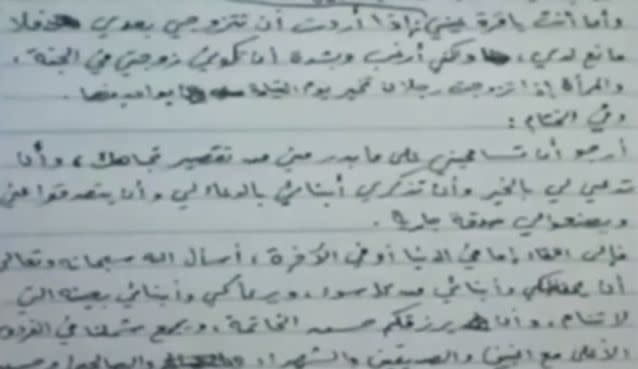 وأما أنت ياقرة عيني إذا أردت أن تتزوجي بعدي فلا
مانع لدي، ولكني أرغب وبشدة أن تكوني زوجتي في الجنة،
والمرأة إذا تزوجت رجلان تخير يوم القيامة بواحد منهما.
وفي الختام:
أرجو أن تسامحيني على ما بدر مني من تقصير تجاهك، وأن
تدعي لي بالخير وأن تذكري أبنائي بالدعاء لي وأن يتصدقوا عني
ويصنعوا لي صدقة جارية.
فإلى اللقاء إما في الدنيا أو في الآخرة، أسأل الله سبحانه وتعالى
أن يحفظكي وأبنائي من كل سوء، ويرعاكي وأبنائي بعينه التي
لا تنام، وأن يرزقكم حسن الخاتمة، ويجمع شملنا في الفردوس
الأعلى مع النبيين والصديقين والشهداء والصالحين